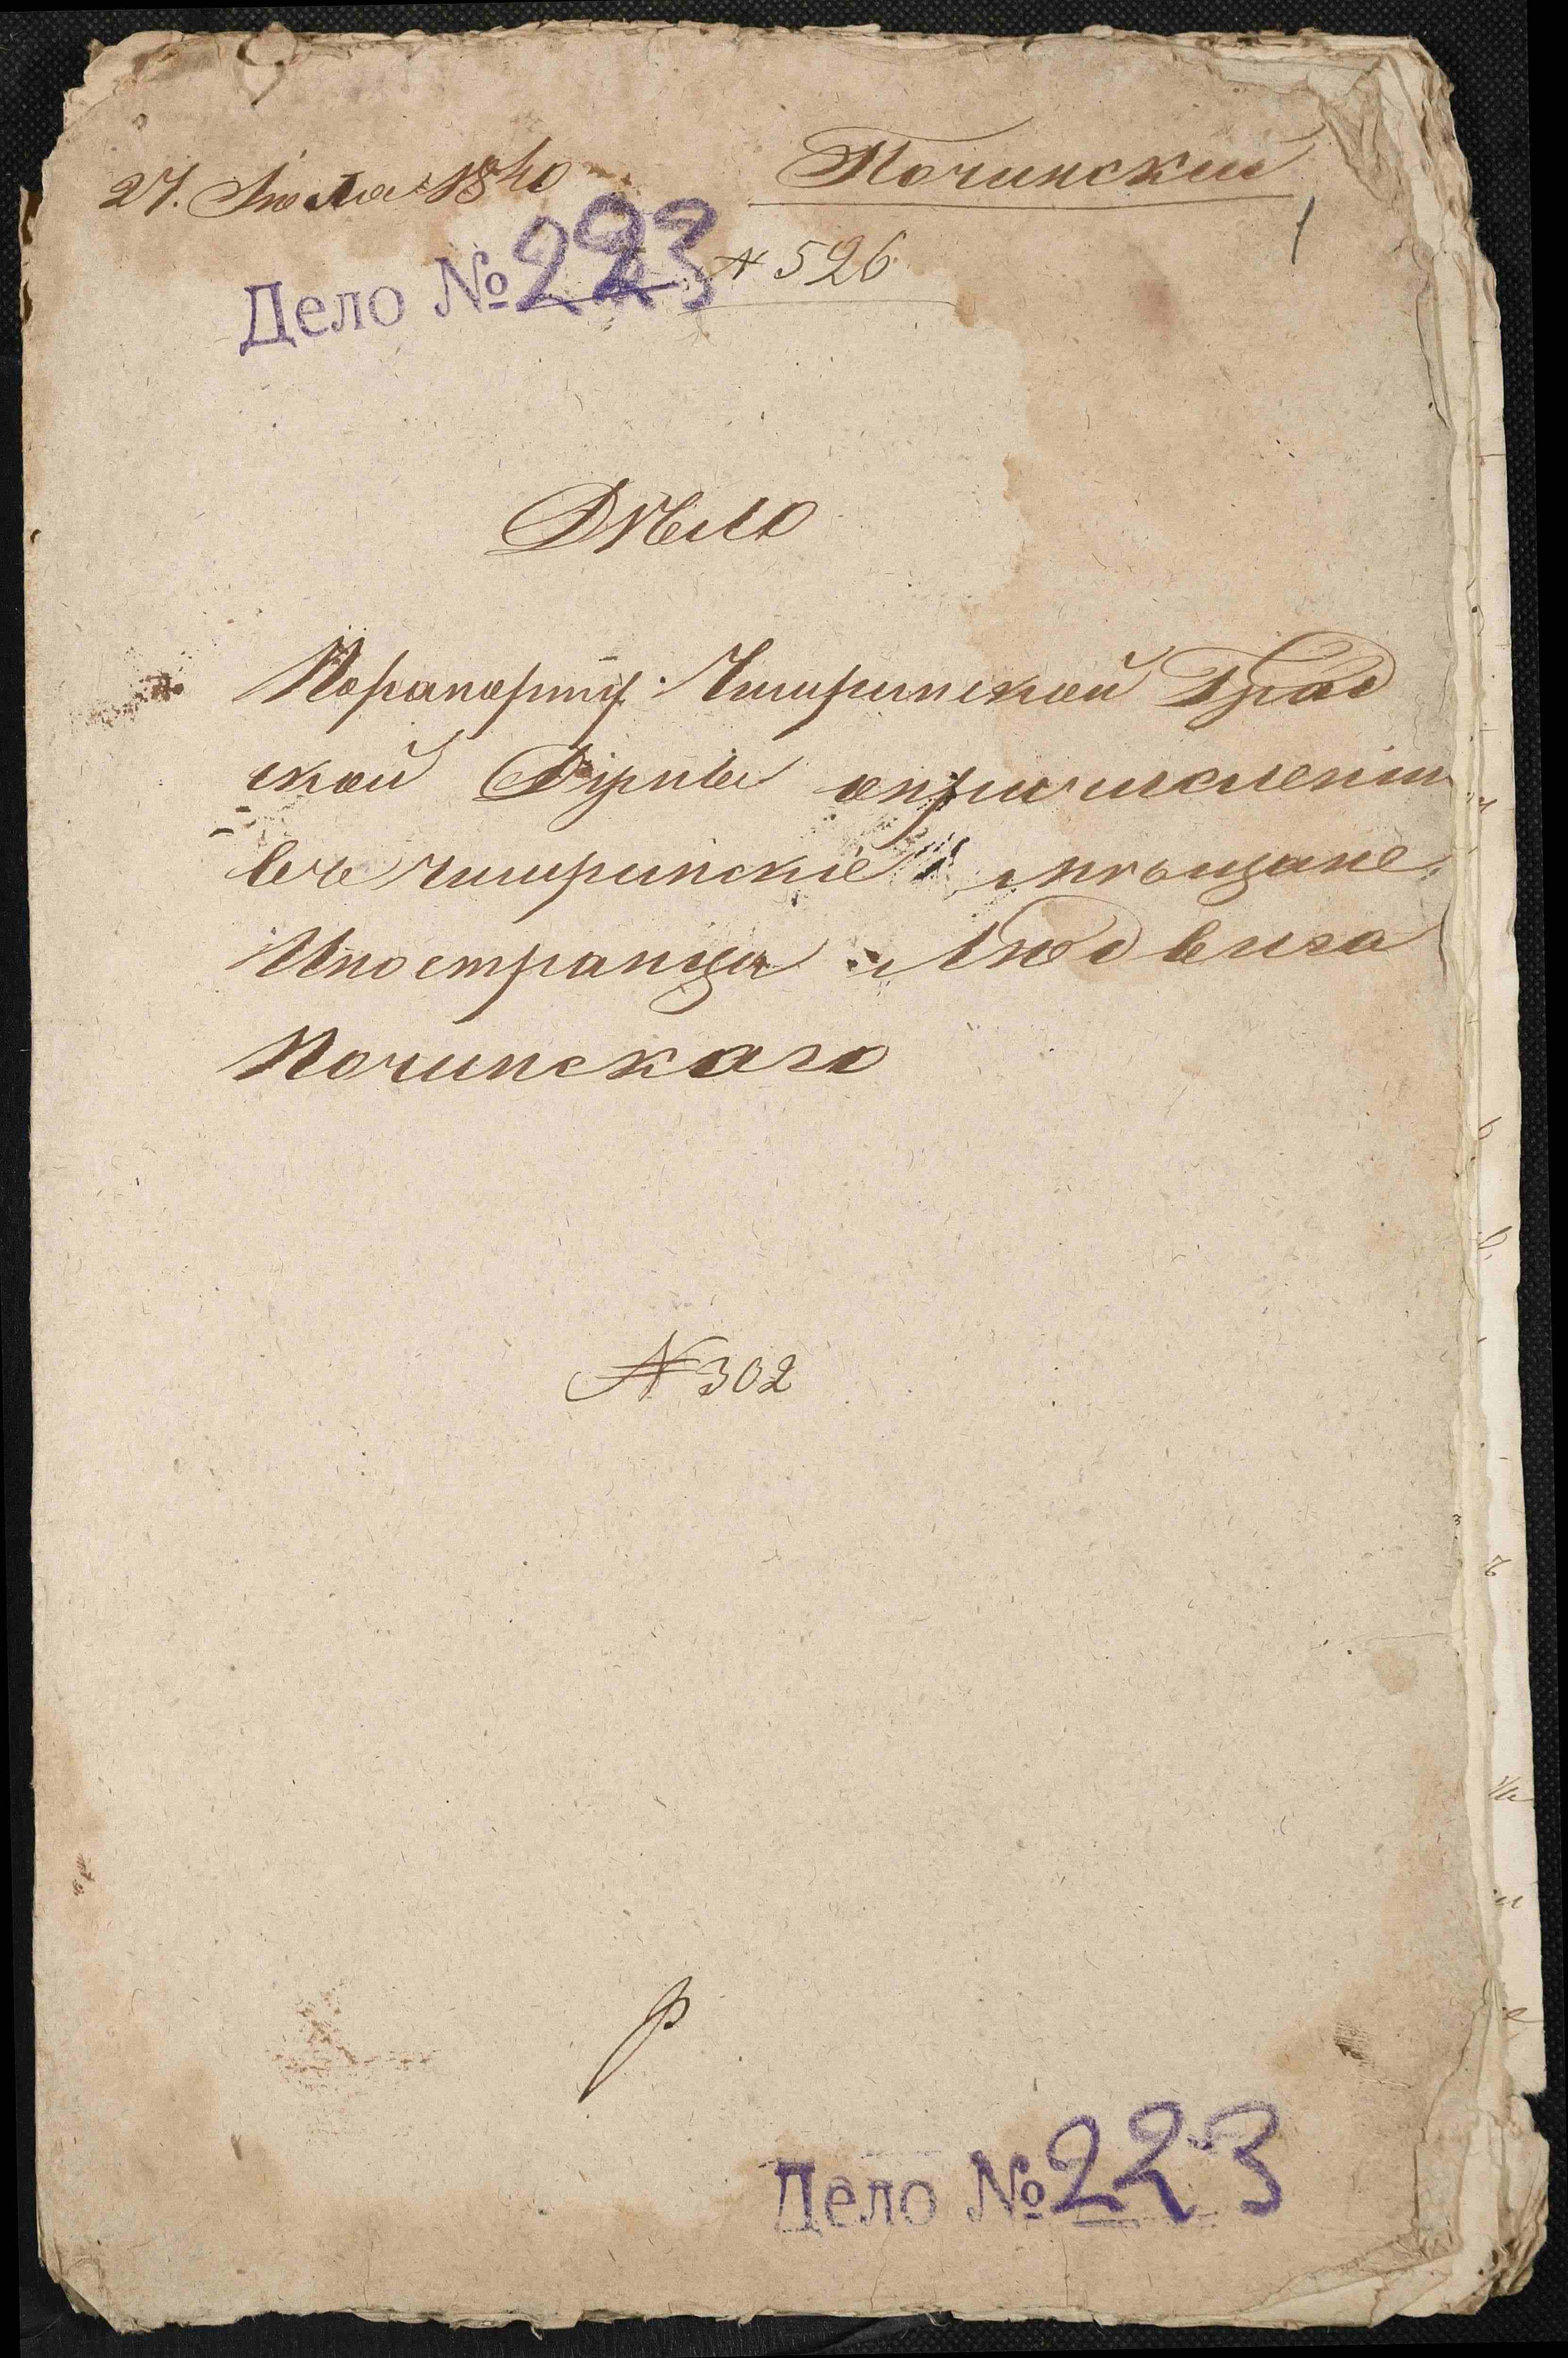 27. Июля 1840
Починскій
1
Дело № 223
№ 526
Дѣло
Порапорту Чигиринской Град
ской Думы опричисленіи
въ чигиринскіе мѣщане
Иностранца Людвига
Починскаго
№ 302
Дело № 223